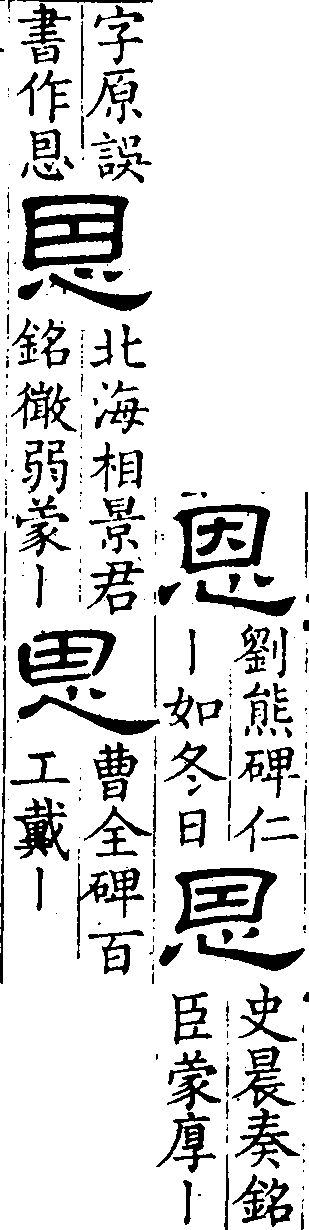 恩
劉熊碑仁
丨如冬日
恩
史晨奏銘
臣蒙厚丨
字原誤
書作恩
恩
北海相景君
銘微弱蒙丨
恩
曹全碑百
工戴丨